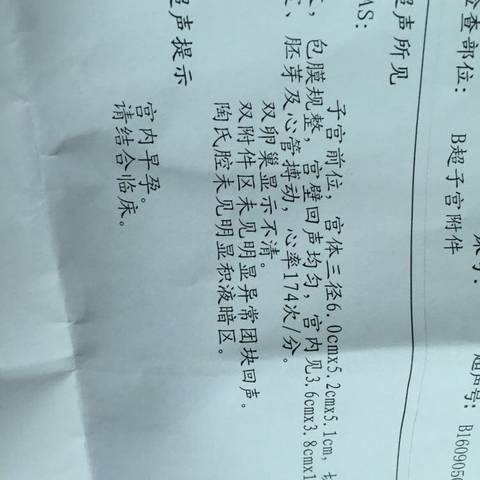 号: 超声号: B1609050
检查部位: B超子宫附件
超声所见
AS:
子宫前位, 宫体三径6.0cmx5.2cmx5.1cm,
, 包膜规整, 宫壁回声均匀, 宫内见3.6cmx3.8cmx1
、胚芽及心管搏动, 心率174次/分。
双卵巢显示不清。
双附件区未见明显异常团块回声。
陶氏腔未见明显积液暗区。
超声提示
宫内早孕。
请结合临床。